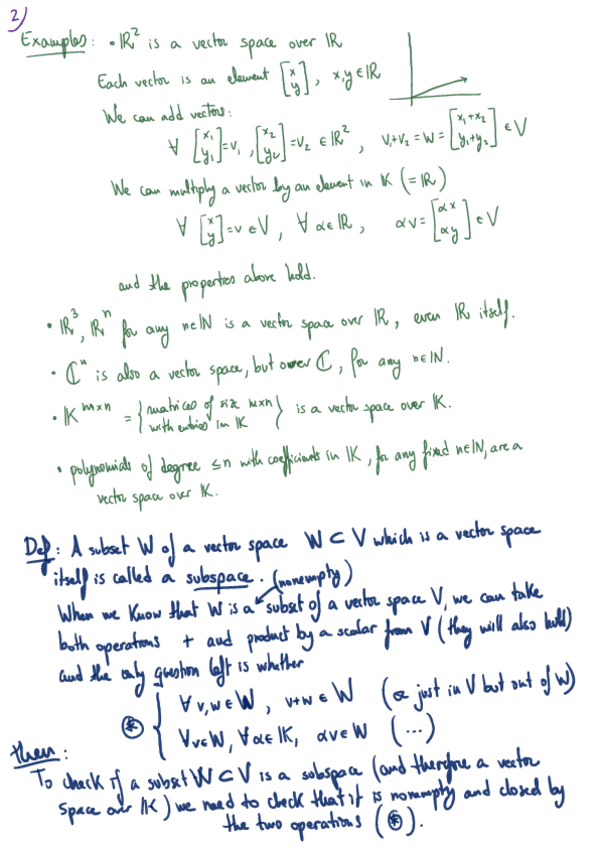 2)
Examples: • ℝ² is a vector space over ℝ
Each vector is an element [x y], x,y ∈ ℝ
We can add vectors:
∀ [x₁ y₁] = v₁, [x₂ y₂] = v₂ ∈ ℝ², v₁+v₂ = w = [x₁+x₂ y₁+y₂] ∈ V
We can multiply a vector by an element in 𝕂 (=ℝ)
∀ [x y] = v ∈ V, ∀ α ∈ ℝ, αv = [αx αy] ∈ V
and the properties above hold.
• ℝ³, ℝⁿ for any n∈ℕ is a vector space over ℝ, even ℝ itself.
• ℂⁿ is also a vector space, but over ℂ, for any n∈ℕ.
• 𝕂^{m×n} = { matrices of size m×n
with entries in 𝕂 } is a vector space over 𝕂.
• polynomials of degree ≤n with coefficients in 𝕂, for any fixed n∈ℕ, are a
vector space over 𝕂.
Def: A subset W of a vector space W ⊂ V which is a vector space
itself is called a subspace. (nonempty)
When we know that W is a subset of a vector space V, we can take
both operations + and product by a scalar from V (they will also hold)
and the only question left is whether
∀ v,w ∈ W, v+w ∈ W (or just in V but out of W)
⊛ { ∀ v∈W, ∀ α∈𝕂, αv ∈ W (...)
then:
To check if a subset W ⊂ V is a subspace (and therefore a vector
space over 𝕂) we need to check that it is nonempty and closed by
the two operations (⊛).